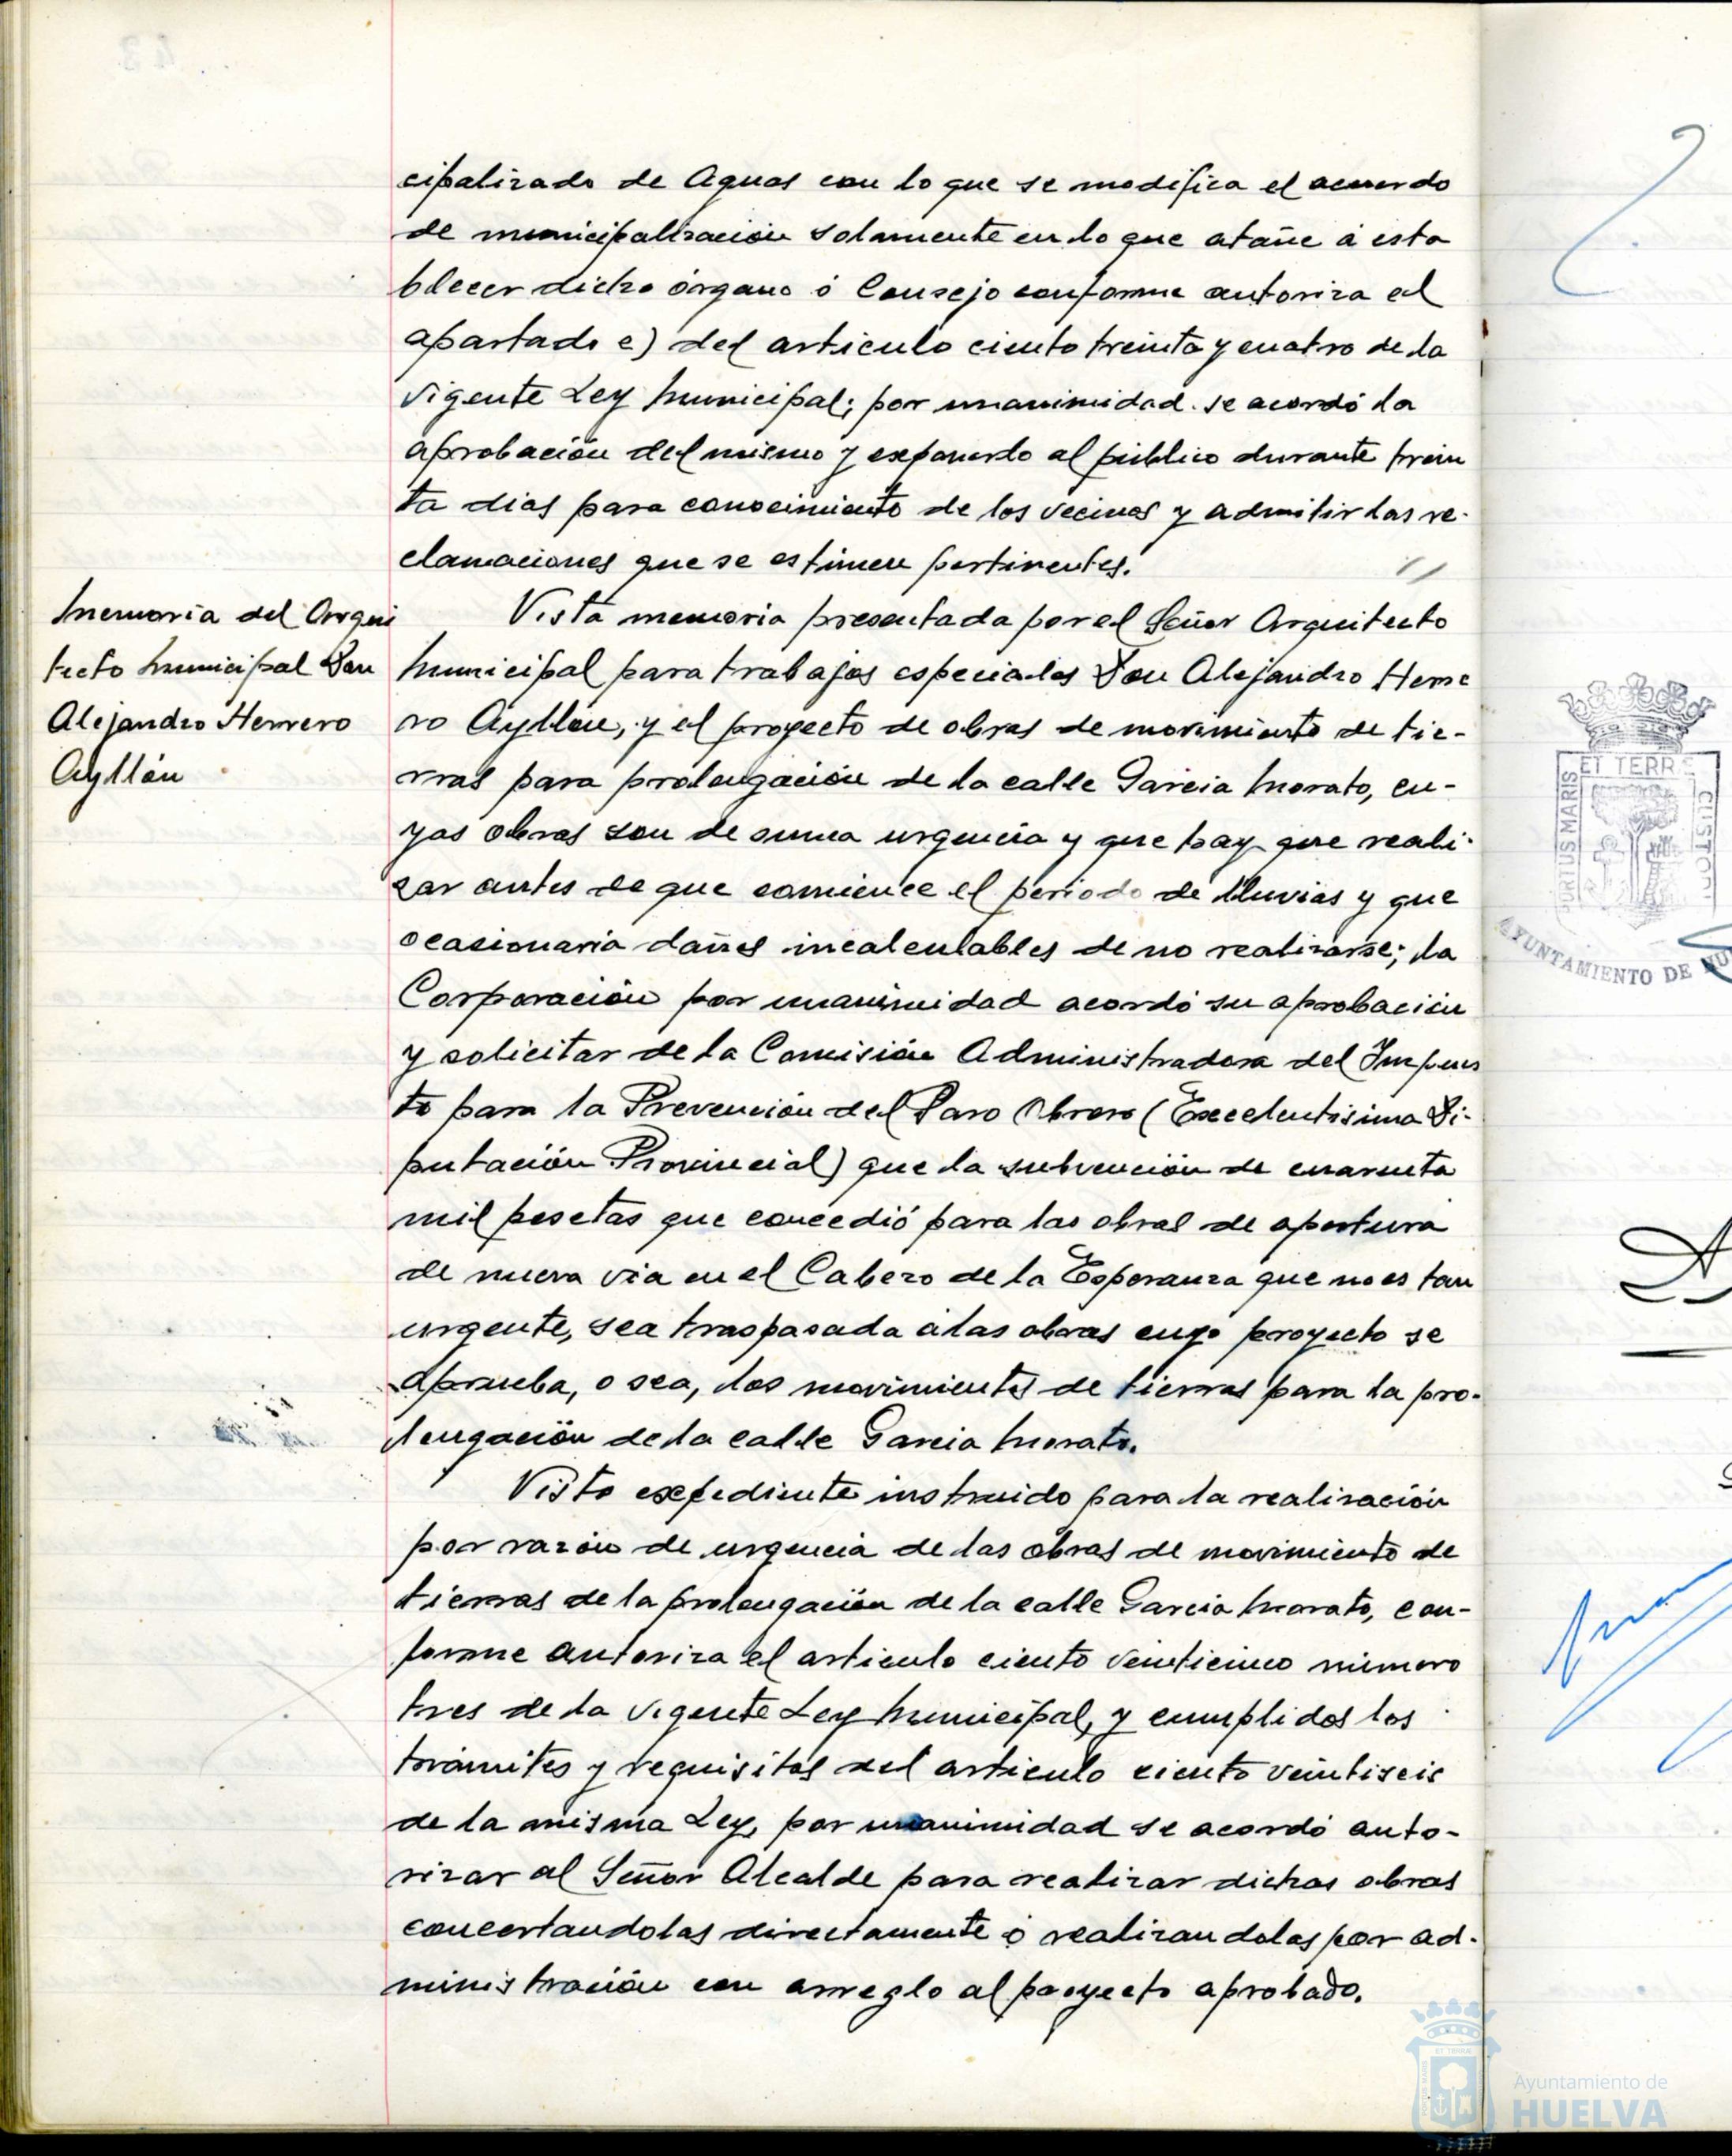 cipalizado de Aguas con lo que se modifica el acuerdo
de municipalización solamente en lo que atañe á esta
blecer dicho órgano ó Consejo conforme autoriza el
apartado e) del articulo ciento treinta y cuatro de la
vigente Ley Municipal; por unanimidad se acordó la
aprobación del mismo y exponerlo al público durante trein
ta dias para conocimiento de los vecinos y admitir las re-
clamaciones que se estimen pertinentes.
Memoria del Arqui
tecto Municipal Don
Alejandro Herrero
Ayllón
Vista memoria presentada por el Señor Arquitecto
Municipal para trabajos especiales Don Alejandro Herre
ro Ayllón, y el proyecto de obras de movimiento de tie-
rras para prolongación de la calle Garcia Morato, cu-
yas obras son de suma urgencia y que hay que reali-
zar antes de que comience el periodo de lluvias y que
ocasionaria daños incalculables de no realizarse; la
Corporación por unanimidad acordó su aprobación
y solicitar de la Comisión Administradora del Impues
to para la Prevención del Paro Obrero (Excelentisima Di-
putación Provincial) que la subvención de cuarenta
mil pesetas que concedió para las obras de apertura
de nueva via en el Cabezo de la Esperanza que no es tan
urgente, sea traspasada á las obras cuyo proyecto se
aprueba, o sea, los movimientos de tierras para la pro-
longación de la calle Garcia Morato.
Visto expediente instruido para la realización
por razón de urgencia de las obras de movimiento de
tierras de la prolongación de la calle Garcia Morato, con-
forme autoriza el articulo ciento veinticinco número
tres de la vigente Ley Municipal, y cumplidos los
trámites y requisitos del articulo ciento veintiseis
de la misma Ley, por unanimidad se acordó auto-
rizar al Señor Alcalde para realizar dichas obras
concertandolas directamente ó realizandolas por ad-
ministración con arreglo al proyecto aprobado.
PORTUS MARIS
ET TERRE
CUSTODI
AYUNTAMIENTO DE HU
Ayuntamiento de
HUELVA